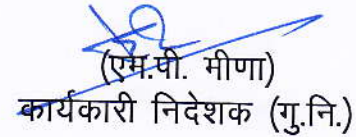 (एम.पी. मीणा)
कार्यकारी निदेशक (गु.नि.)